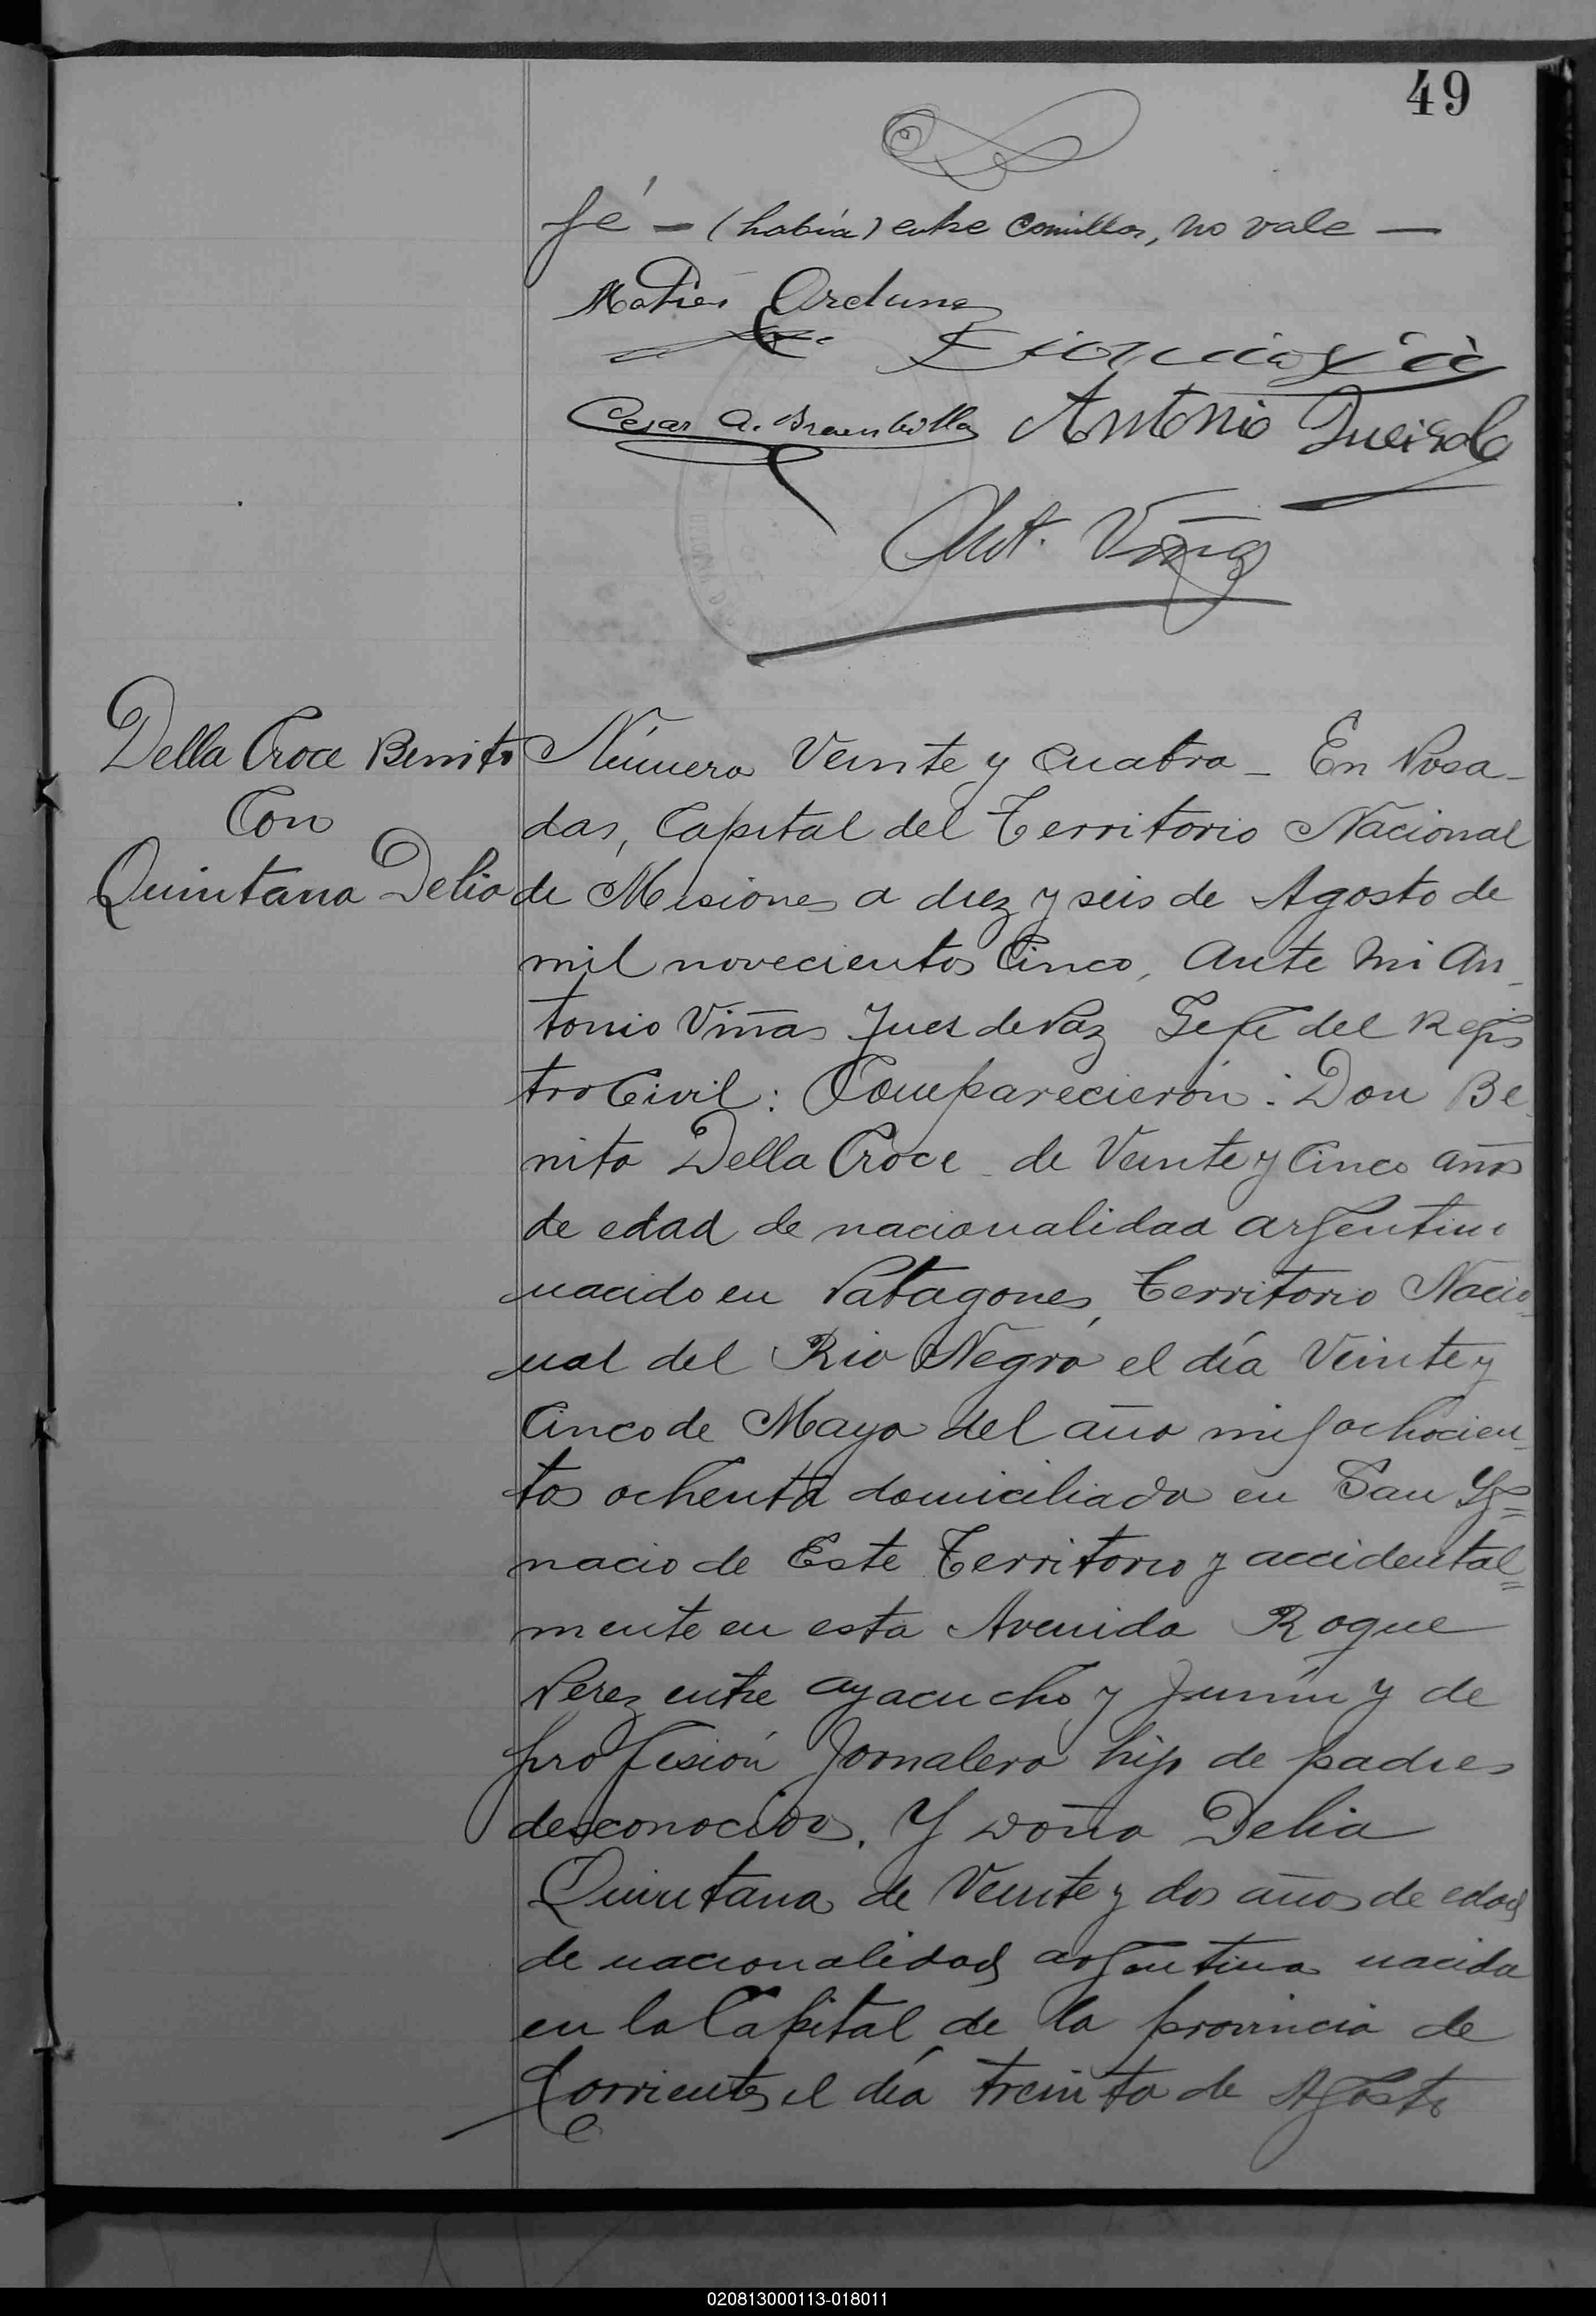 49
fé — (había) entre comillas, no vale —
Matías Orduna
Cesar A. Brambilla Antonio Queirolo
Ant. Viñas
Della Croce Benito
Con
Quintana Delia
Número Veinte y cuatro — En Posa-
das, Capital del Territorio Nacional
de Misiones a diez y seis de Agosto de
mil novecientos Cinco, Ante mi An-
tonio Viñas Juez de Paz Gefe del Regis
tro Civil: Comparecierón: Don Be-
nito Della Croce de Veinte y Cinco años
de edad de nacionalidad argentino
nacido en Patagones, Territorio Nacio-
nal del Rio Negro el día Veinte y
Cinco de Mayo del año mil ochocien-
tos ochenta domiciliado en San Yg=
nacio de Este Territorio y accidental=
mente en esta Avenida Roque
Perez entre Ayacucho y Junín y de
profesión Jornalero hijo de padres
desconocidos. Y Doña Delia
Quintana de Veinte y dos años de edad
de nacionalidad argentina nacida
en la Capital de la provincia de
Corrientes el día treinta de Agosto
020813000113-018011